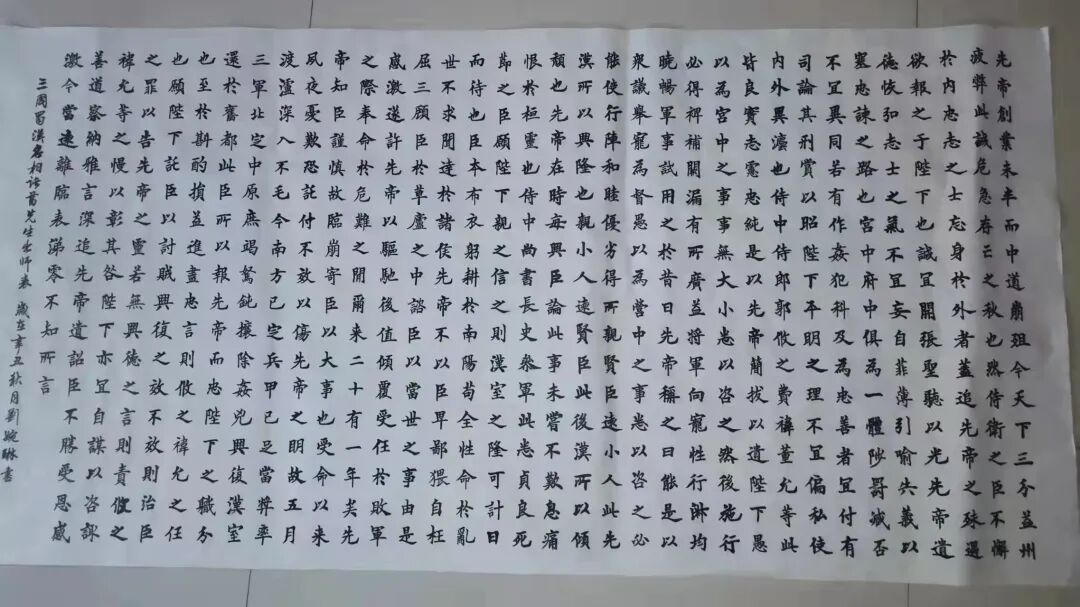 先帝創業未半而中道崩殂今天下三分益州
疲弊此誠危急存亡之秋也然侍衛之臣不懈
於內忠志之士忘身於外者蓋追先帝之殊遇
欲報之于陛下也誠宜開張聖聽以光先帝遺
德恢弘志士之氣不宜妄自菲薄引喻失義以
塞忠諫之路也宮中府中俱為一體陟罰臧否
不宜異同若有作姦犯科及為忠善者宜付有
司論其刑賞以昭陛下平明之理不宜偏私使
內外異灋也侍中侍郎郭攸之費禕董允等此
皆良實志慮忠純是以先帝簡拔以遺陛下愚
以為宮中之事事無大小悉以咨之然後施行
必得裨補闕漏有所廣益將軍向寵性行淑均
曉暢軍事試用之於昔日先帝稱之曰能是以
衆議舉寵為督愚以為營中之事悉以咨之必
能使行陣和睦優劣得所親賢臣遠小人此先
漢所以興隆也親小人遠賢臣此後漢所以傾
頹也先帝在時每興臣論此事未嘗不歎息痛
恨於桓靈也侍中尚書長史參軍此悉貞良死
節之臣願陛下親之信之則漢室之隆可計日
而待也臣本布衣躬耕於南陽苟全性命於亂
世不求聞達於諸侯先帝不以臣卑鄙猥自枉
屈三顧臣於草廬之中諮臣以當世之事由是
感激遂許先帝以驅馳後值傾覆受任於敗軍
之際奉命於危難之間爾來二十有一年矣先
帝知臣謹慎故臨崩寄臣以大事也受命以來
夙夜憂歎恐託付不效以傷先帝之明故五月
渡瀘深入不毛今南方已定兵甲已足當弊率
三軍北定中原庶竭駑鈍攘除姦兇興復漢室
還於舊都此臣所以報先帝而忠陛下之職分
也至於斟酌損益進盡忠言則攸之禕允之任
也願陛下託臣以討賊興復之效不效則治臣
之罪以告先帝之靈若無興德之言則責攸之
禕允等之慢以彰其咎陛下亦宜自謀以咨諏
善道察納雅言深追先帝遺詔臣不勝受恩感
激今當遠離臨表涕零不知所言
三國蜀漢名相諸葛先生出師表 歲在辛丑秋月劉琳書